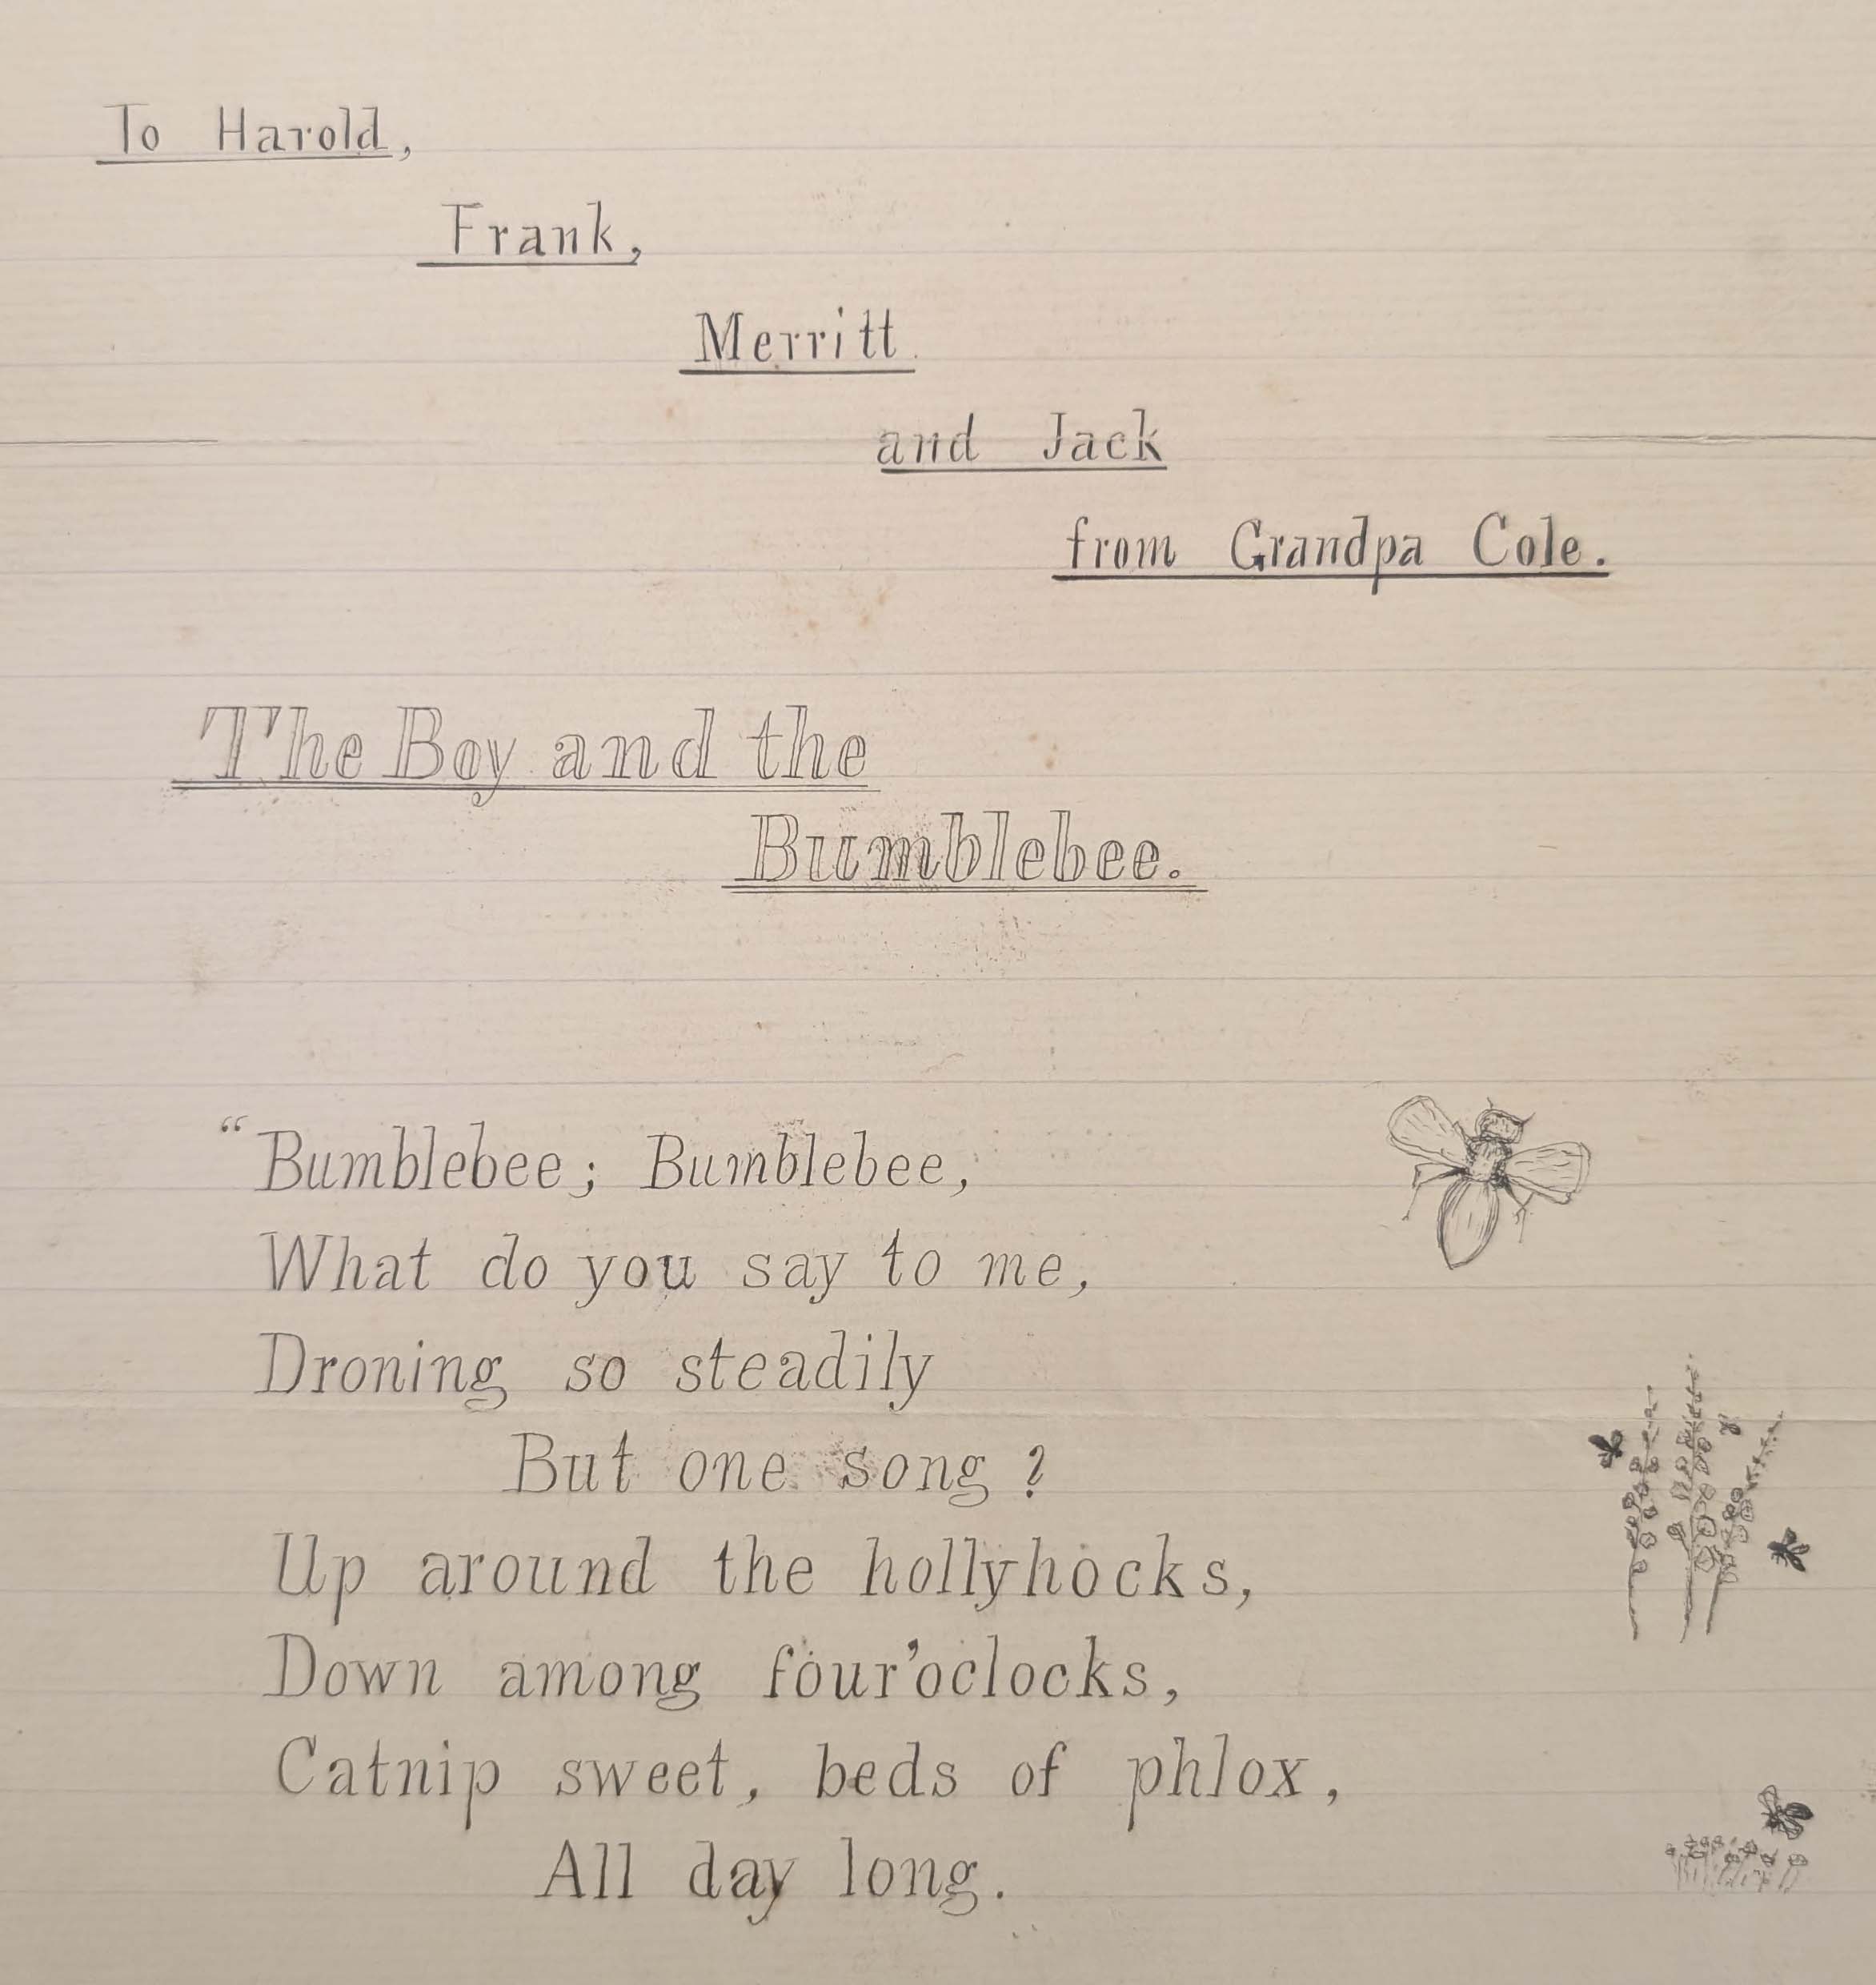 To Harold,
Frank,
Merritt
and Jack
from Grandpa Cole.
The Boy and the
Bumblebee.
“Bumblebee; Bumblebee,
What do you say to me,
Droning so steadily
But one song?
Up around the hollyhocks,
Down among four'oclocks,
Catnip sweet, beds of phlox,
All day long.